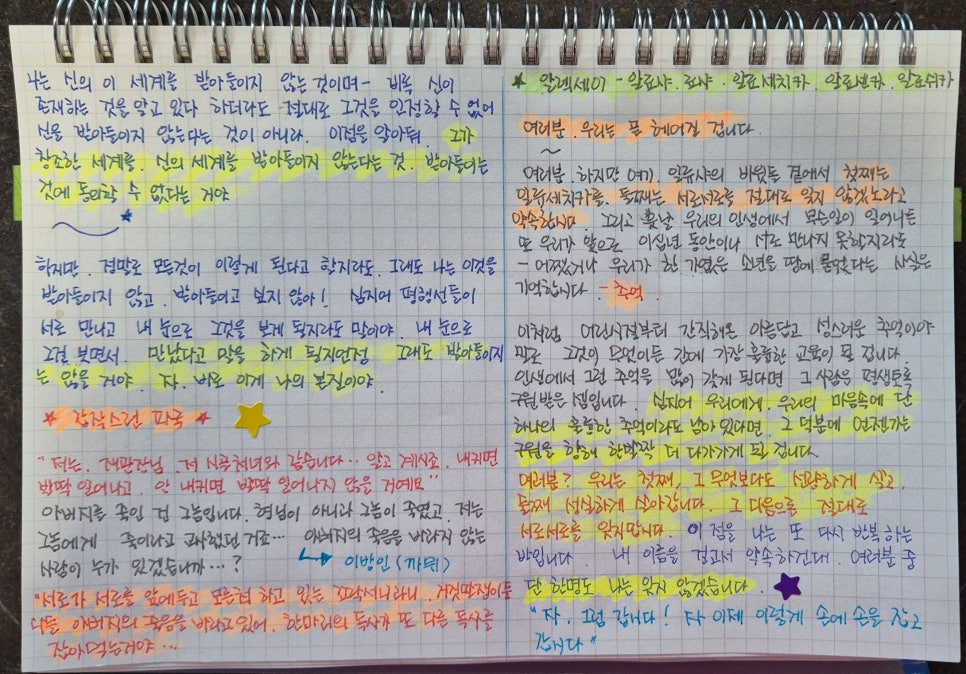 나는 신의 이 세계를 받아들이지 않는 것이며- 비록 신이
존재하는 것을 알고 있다 하더라도 절대로 그것을 인정할 수 없어
신을 받아들이지 않는다는 것이 아니라. 이점을 알아둬. 그가
창조한 세계를. 신의 세계를 받아들이지 않는다는 것. 받아들이는
것에 동의할 수 없다는 거야
하지만. 정말로 모든것이 이렇게 된다고 할지라도. 그래도 나는 이것을
받아들이지 않고. 받아들이고 보지 않아! 심지어 평행선들이
서로 만나고 내 눈으로 그것을 보게 될지라도 말이야. 내 눈으로
그걸 보면서. 만났다고 말을 하게 될지언정 그래도 받아들이지
는 않을 거야. 자. 바로 이게 나의 본질이야.
★ 갑작스런 파국 ★
"저는. 재판장님. 저 시골처녀와 같습니다… 알고 계시죠. 내키면
발딱 일어나고. 안 내키면 발딱 일어나지 않을 거예요"
아버지를 죽인 건 그놈입니다. 형님이 아니라 그놈이 죽였고. 저는
그놈에게 죽이라고 교사했던 거죠… 아버지의 죽음을 바라지 않는
사람이 누가 있겠습니까…?
→ 이방인 (까뮈)
"서로가 서로를 앞에두고 모른척 하고 있는 꼬락서니라니. 거짓딴쟁이들
다들 아버지의 죽음을 바라고있어. 한마리의 독사가 또 다른 독사를
잡아먹는거야…
★ 알렉세이 - 알료샤. 료샤. 알료세치카 알료센카. 알료쉬카
여러분. 우리는 곧 헤어질 겁니다.
~
여러분. 하지만 여기. 일류샤의 바윗돌 곁에서 첫째는
일류세치카를. 둘째는 서로서로를 절대로 잊지 않겠노라고
약속합시다. 그리고 훗날 우리의 인생에서 무슨일이 일어나든
또 우리가 앞으로 이십년 동안이나 서로 만나지 못할지라도
- 어쨌거나 우리가 한 가엾은 소년을 땅에 묻었다는 사실은
기억합시다. - 추억.
이처럼. 어린시절부터 간직해온 아름답고 성스러운 추억이야
말로 그것이 무엇이든 간에 가장 훌륭한 교육이 될 겁니다.
인생에서 그런 추억을 많이 갖게 된다면 그 사람은 평생토록
구원받은 셈입니다. 심지어 우리에게. 우리의 마음속에 단
하나의 훌륭한 추억이라도 남아 있다면. 그 덕분에 언젠가는
구원을 향해 한발짝 더 다가가게 될 겁니다
여러분? 우리는 첫째, 그 무엇보다도 선량하게 살고.
둘째 성실하게 살아갑니다. 그 다음으로 절대로
서로서로를 잊지맙시다. 이 점을 나는 또 다시 반복하는
바입니다. 내 이름을 걸고서 약속하건대. 여러분 중
단 한명도 나는 잊지 않겠습니다.
"자. 그럼 갑시다! 자 이제 이렇게 손에 손을 잡고
갑시다"